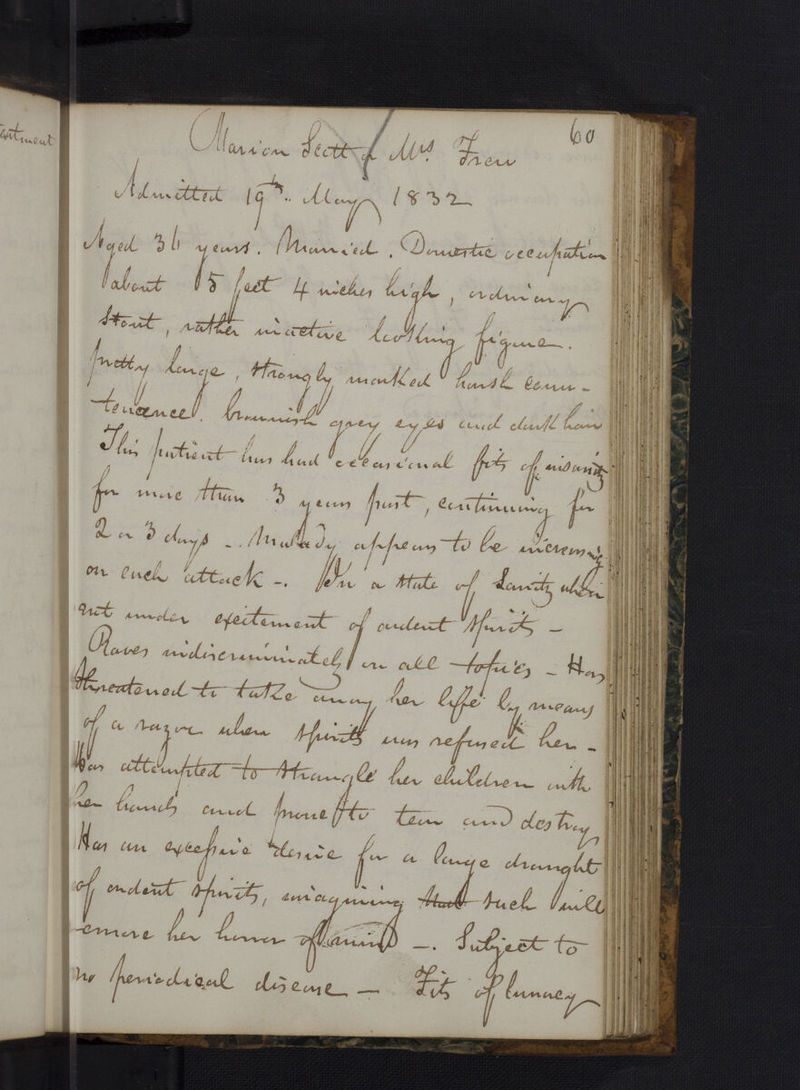 60
Marion Scott or Mrs. Frew
Admitted 19th.. May 1832
Aged 36 years. Married. Domestic occupation
about 5 feet 4 inches high, ordinary
Stout, rather inactive looking figure.
pretty large, strongly marked harsh coun-
tenance. brownish grey eyes and dark hair
This patient has had occasional fits of insanity
for more than 3 years past, continuing for
2 or 3 days -. Malady appears to be increasing
on each attack -. In a state of Sanity when
not under excitement of ardent spirits -
Raves indiscriminately on all topics - Has
threatened to take away her life by means
of a razor when spirits was refused her -
Has attempted to strangle her children with
her hands and prone to tear and destroy
Has an excessive desire for a large draught
of ardent spirits, imagining that such will
remove her horror of mind -. Subject to
no periodical disease - Fits of lunacy